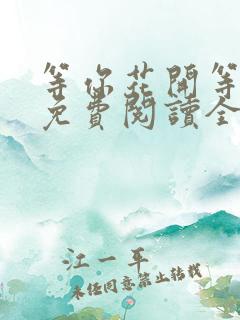 等你花開等
免費閱讀全
江一平
未经同意禁止转载